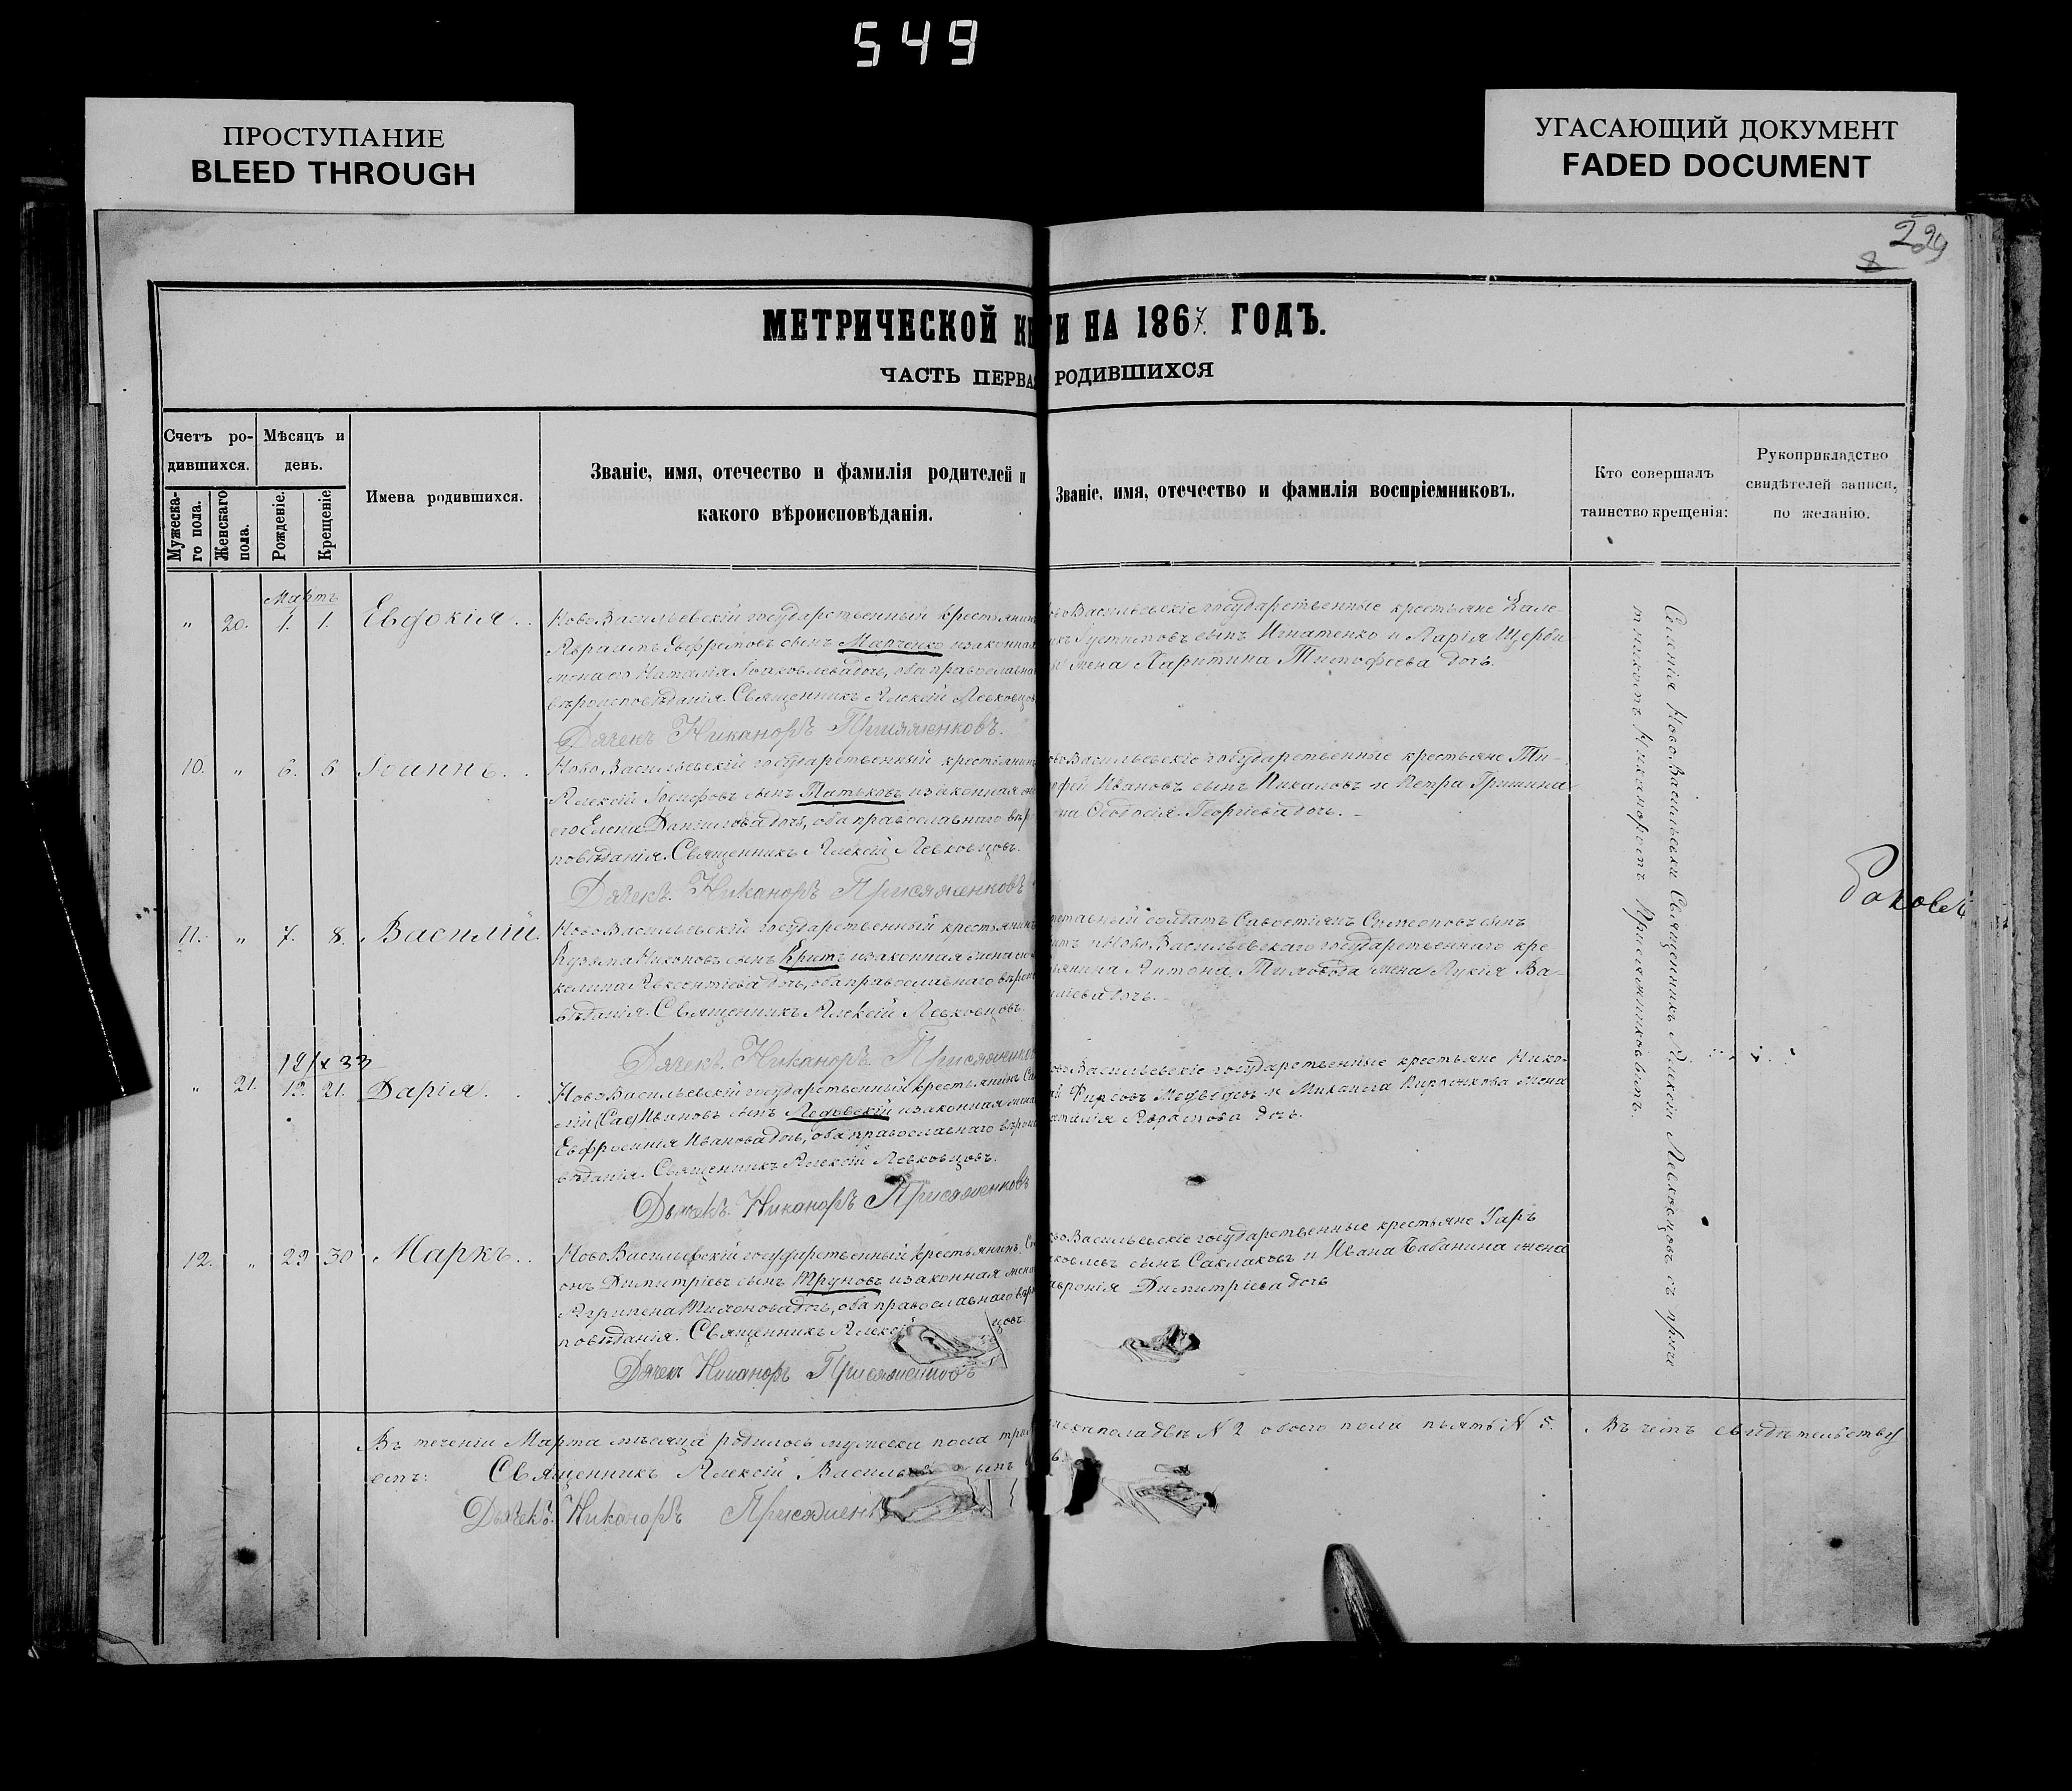 549
ПРОСТУПАНИЕ
BLEED THROUGH
УГАСАЮЩИЙ ДОКУМЕНТ
FADED DOCUMENT
229
8
МЕТРИЧЕСКОЙ КН ГИ НА 1867. ГОДЪ.
ЧАСТЬ ПЕРВАЯ РОДИВШИХСЯ
Счетъ ро-
дившихся.
Мужеска-
го пола.
Женскаго
пола.
Мѣсяцъ и
день.
Рожденіе.
Крещеніе.
Имена родившихся.
Званіе, имя, отечество и фамилія родителей и
какого вѣроисповѣданія.
Званіе, имя, отечество и фамилія воспріемниковъ.
Кто совершалъ
таинство крещенія:
Рукоприкладство
свидѣтелей записи,
по желанію.
Мартъ
" 20. 1. 1. Евдокія..
НовоВасильевскій государственный крестьянинъ
Авраамъ Евфремовъ сынъ Марченко и законная
жена его Наталія Іоаковлева дочь, оба православна
вѣроисповѣданія. Священникъ Алексій Левковцов
Дячекъ Никаноръ Присяженковъ.
воВасильевскіе государственные крестьяне
Устимовъ сынъ Игнатенко и Щерби
жена Харитина Тимофеева дочь.
10. " 6. 6 Іоаннъ..
НовоВасильевскій государственный крестьянинъ
Алексій Іосифовъ сынъ Патьковъ и законная
его Елена Даніилова дочь, оба православнаго вѣр
повѣданія. Священникъ Алексій Левковцовъ.
Дячекъ. Никаноръ Присяженковъ
воВасильевскіе государственные крестьяне Ти-
офей Ивановъ сынъ Пикаловъ и Петра Гришина
ена Феодосія Георгіева дочь.
11. " 7. 8. Василій.
НовоВасильевскій государственный крестьянинъ
Кузьма Никоновъ сынъ Критъ и законная жена
келина Авксентіева дочь, оба православнаго вѣро
вѣданія. Священникъ Алексій Левковцовъ.
Дячекъ. Никаноръ. Присяженков
ставный солдатъ Савостіянъ Симеоновъ сынъ
итъ и НовоВасильевскаго государственнаго кре
ьянина Антона жена Лукія Ва-
иліева дочь.
12/х 33
" 21. 12. 21. Дарія.
НовоВасильевскій государственный крестьянинъ Са
Ивановъ сынъ Ледовскій и законная жена
Евфросинія Иванова дочь, оба православнаго вѣрои
вѣданія. Священникъ Алексій Левковцовъ.
Дьячекъ. Никаноръ Присяженковъ
воВасильевскіе государственные крестьяне Нико-
ай Фирсовъ Медведевъ и Михаила жена
аталія Аврамова дочь.
12. " 29 30 Маркъ..
НовоВасильевскій государственный крестьянинъ. Си
онъ Димитріевъ сынъ Труновъ и законная жена
Агрипена Тихонова дочь, оба православнаго вѣро
повѣданія. Священникъ Алексій цовъ
Дячекъ Никаноръ Присяженковъ
воВасильевскіе государственные крестьяне Уаръ
аковлевъ сынъ Саклаковъ и Ивана Бабанина жена
авронія Димитріева дочь
Селенія НовоВасильевки Священникъ Алексій Левковцовъ съ приче
тникомъ Никаноромъ Присяжниковымъ.
Въ теченіи Марта мѣсяца родилось мужеска пола три
женска пола двѣ N 2 обоего пола пьять N 5. Въ чемъ свидѣтельству
емъ: Священникъ Алексій Василь ынъ
Дьячекъ. Никаноръ Присяжен